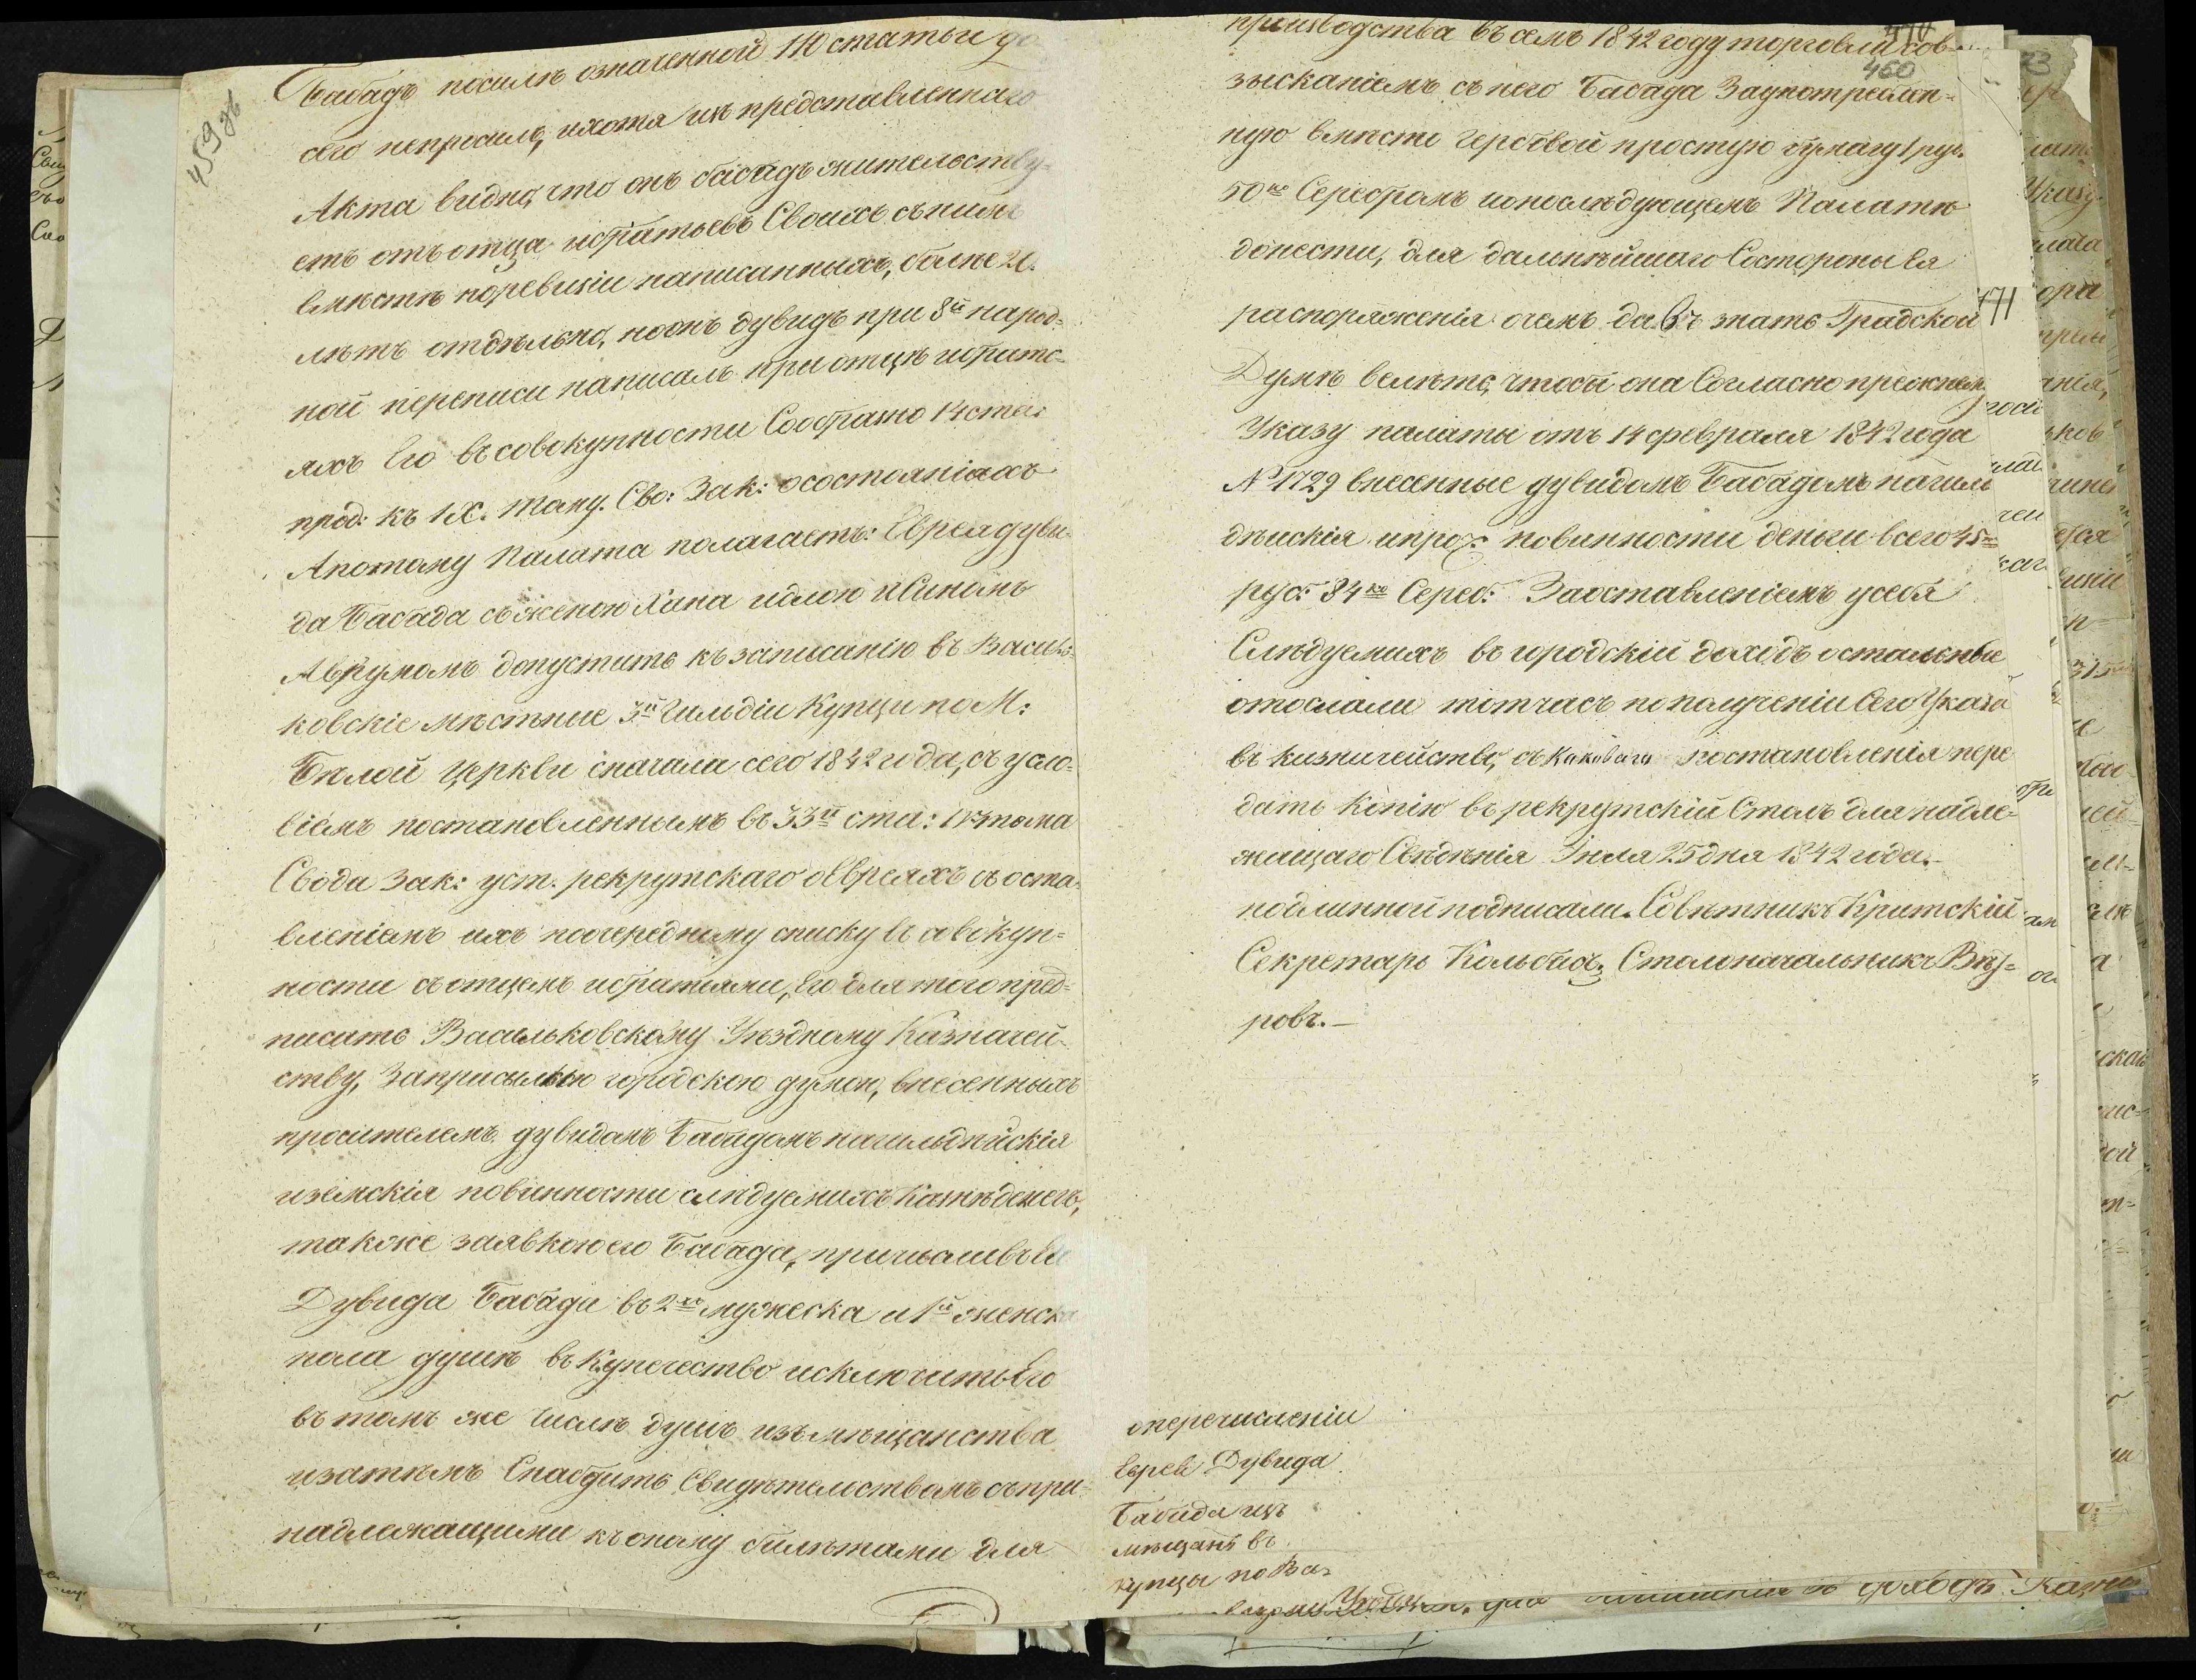 459 об
Бабадъ посилѣ означенной 110 статьи до
сего непросилъ, ихотя изъ представленнаго
Акта видно, что онъ бабадъ жительству-
етъ отъ отца ибратьевъ Своихъ съ нимъ
вмѣстѣ поревизіи написанныхъ, болѣе 20.
лѣтъ отдѣльно, ноонъ дувидъ при 8й народ-
ной переписи написалъ при отцѣ ибрать-
яхъ Его въ совокупности Сообразно 14 стат:
прод: къ IX. тому. Сво: Зак: осостояніяхъ
Апотому Палата полагаетъ: Еврея дуви-
да Бабада съженою Хана идлою иСиномъ
Аврумомъ допустить къ записанію въ Василь-
ковскіе мѣстные 3й Гильдіи Купци по М:
Бѣлой Церкви сначала сего 1842 года, съ усло-
віемъ постановленнымъ въ 33й ста: IV тома
Свода Зак: уст. рекрутскаго оЕвреяхъ съ оста-
вленіемъ ихъ поочередному списку въ совокуп-
ности съ отцемъ ибратьями, Его для того пред-
писать Васильковскому Уѣздному Казначей-
ству, Заприсылкою городскою думою, внесенныхъ
просителемъ дувидомъ Бабадомъ нагильдѣйскія
иземскія повинности слѣдуемихъ Казнѣ денегъ,
такоже заявкою его Бабада, причисливъ Ев
Дувида Бабада въ 2хъ мужеска и 1й женска
пола душѣ въ Купечество исключить Его
въ томъ же Числѣ душъ изъ мѣщанства
изатѣмъ Снабдить Свидѣтельствомъ съ при-
надлежащими къ оному билѣтами для
470
460
производства въ семъ 1842 году торговли сов-
зысканіемъ съ него Бабада Заупотреблен-
ную вмѣсто гербовой простую бумагу 1 руб.
50 ко Серебромъ ипослѣдующемъ Палатѣ
донести, для дальнѣйшаго Состороны Ея
распоряженія очемъ давъ знать Градской
Думѣ велѣть, чтобы она Согласно прежнему
Указу палаты отъ 14 февраля 1842 года
№ 1729 внесенные дувидомъ Бабадомъ нагиль
дѣйскія ипроч: повинности деньги всего 45
руб: 84 ко Сереб: Заоставленіемъ усебя
Слѣдуемихъ въ городскій доходъ остальные
отослали тотчасъ по полученіи Сего Указа
въ казначейство, съ Каковаго постановленія пере
дать Копію въ рекрутскій Столъ для надле-
жащаго Свѣдѣнія Іюля 25 дня 1842 года.-
подлинной подписали. Совѣтникъ Критскій
Секретарь Кольбасъ, Столоначальникъ
ровъ.—
оперечисленіи
Еврея Дувида
Бабада изъ
мѣщанъ въ
купцы по Ва-
471